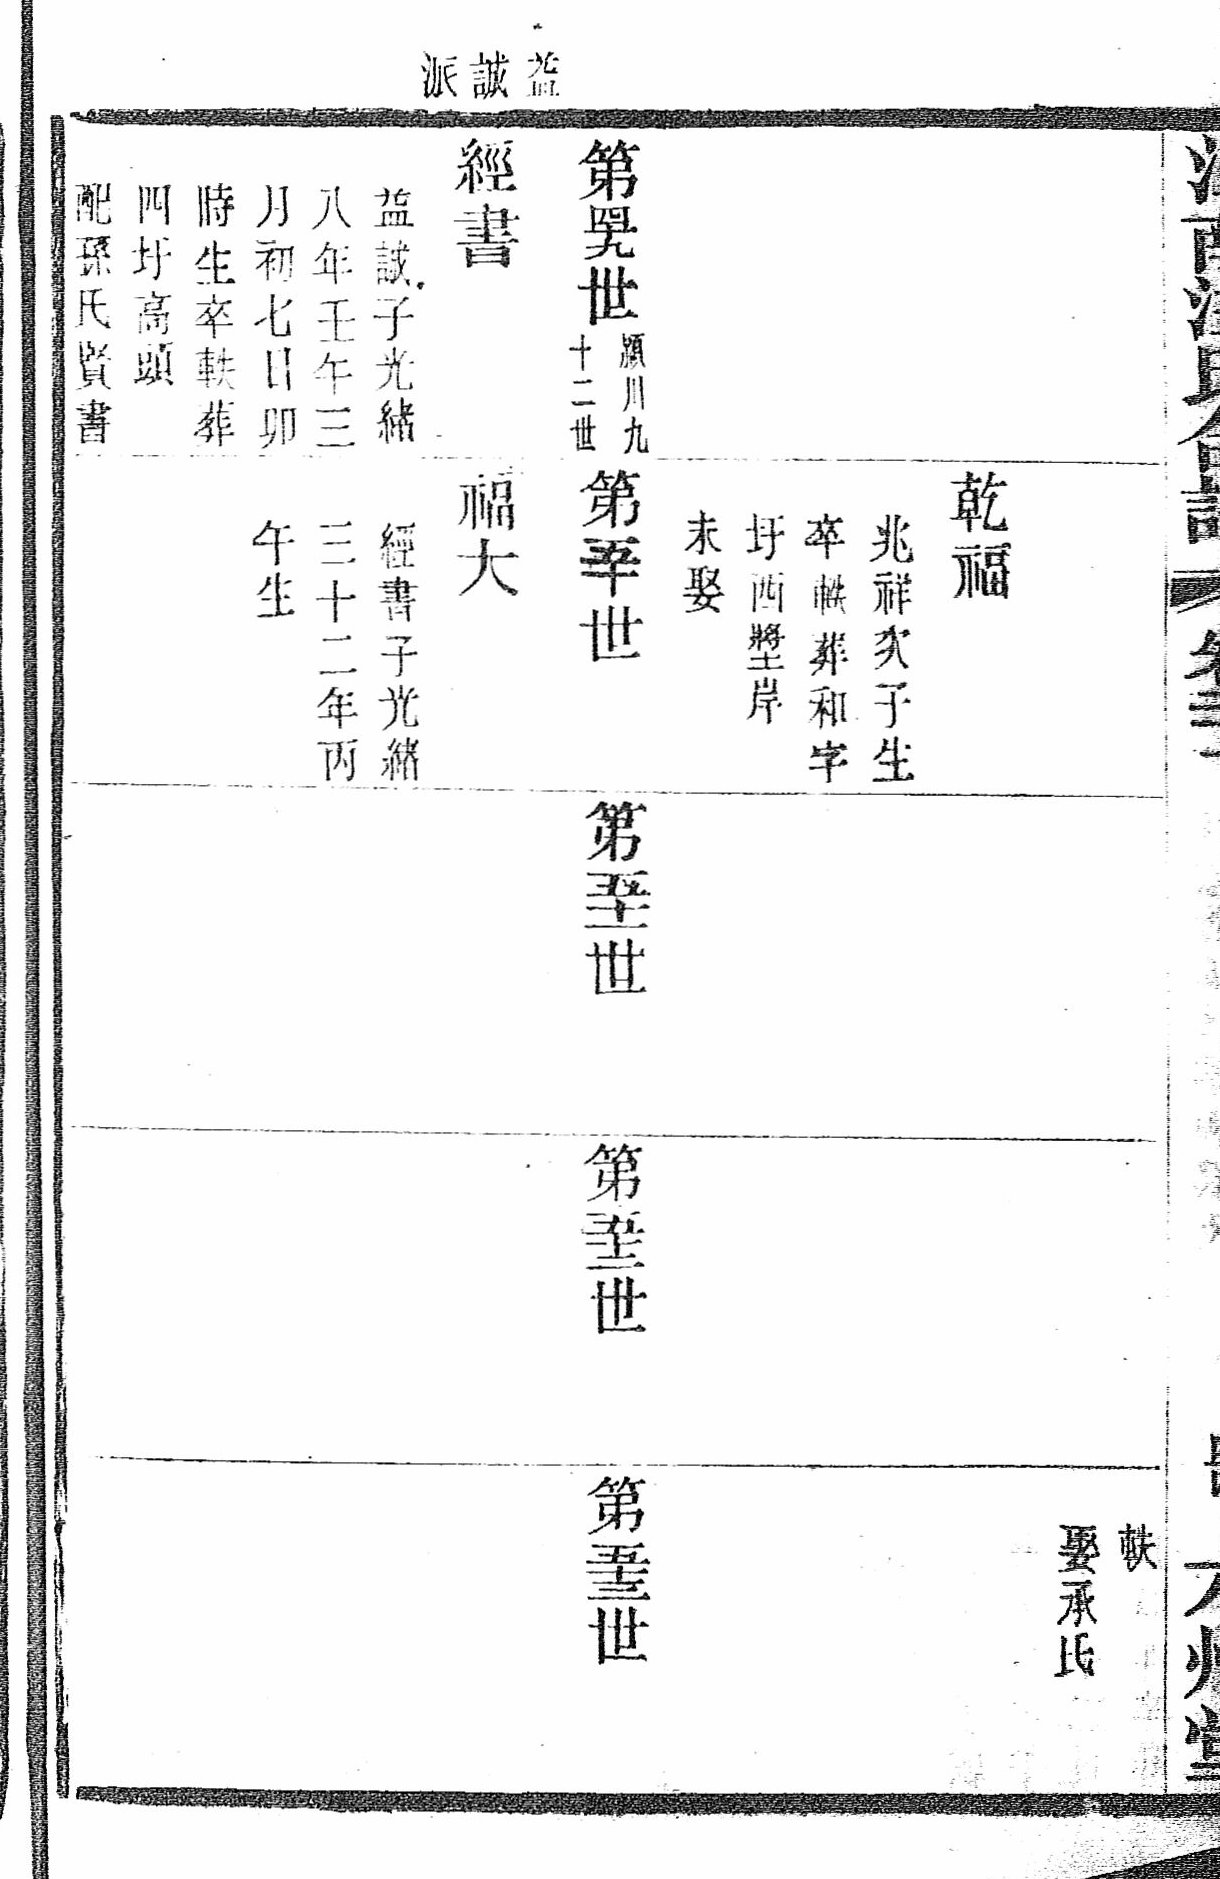 益誠派
第四十九世
潁川九
十二世
經書
益誠子光緒
八年壬午三
月初七日卯
時生卒軼葬
四圩高頭
配孫氏賢書
乾福
兆祥次子生
卒軼葬和字
圩西墏岸
未娶
第五十世
福大
經書子光緒
三十二年丙
午生
第五十一世
第五十二世
軼
娶承氏
第五十三世